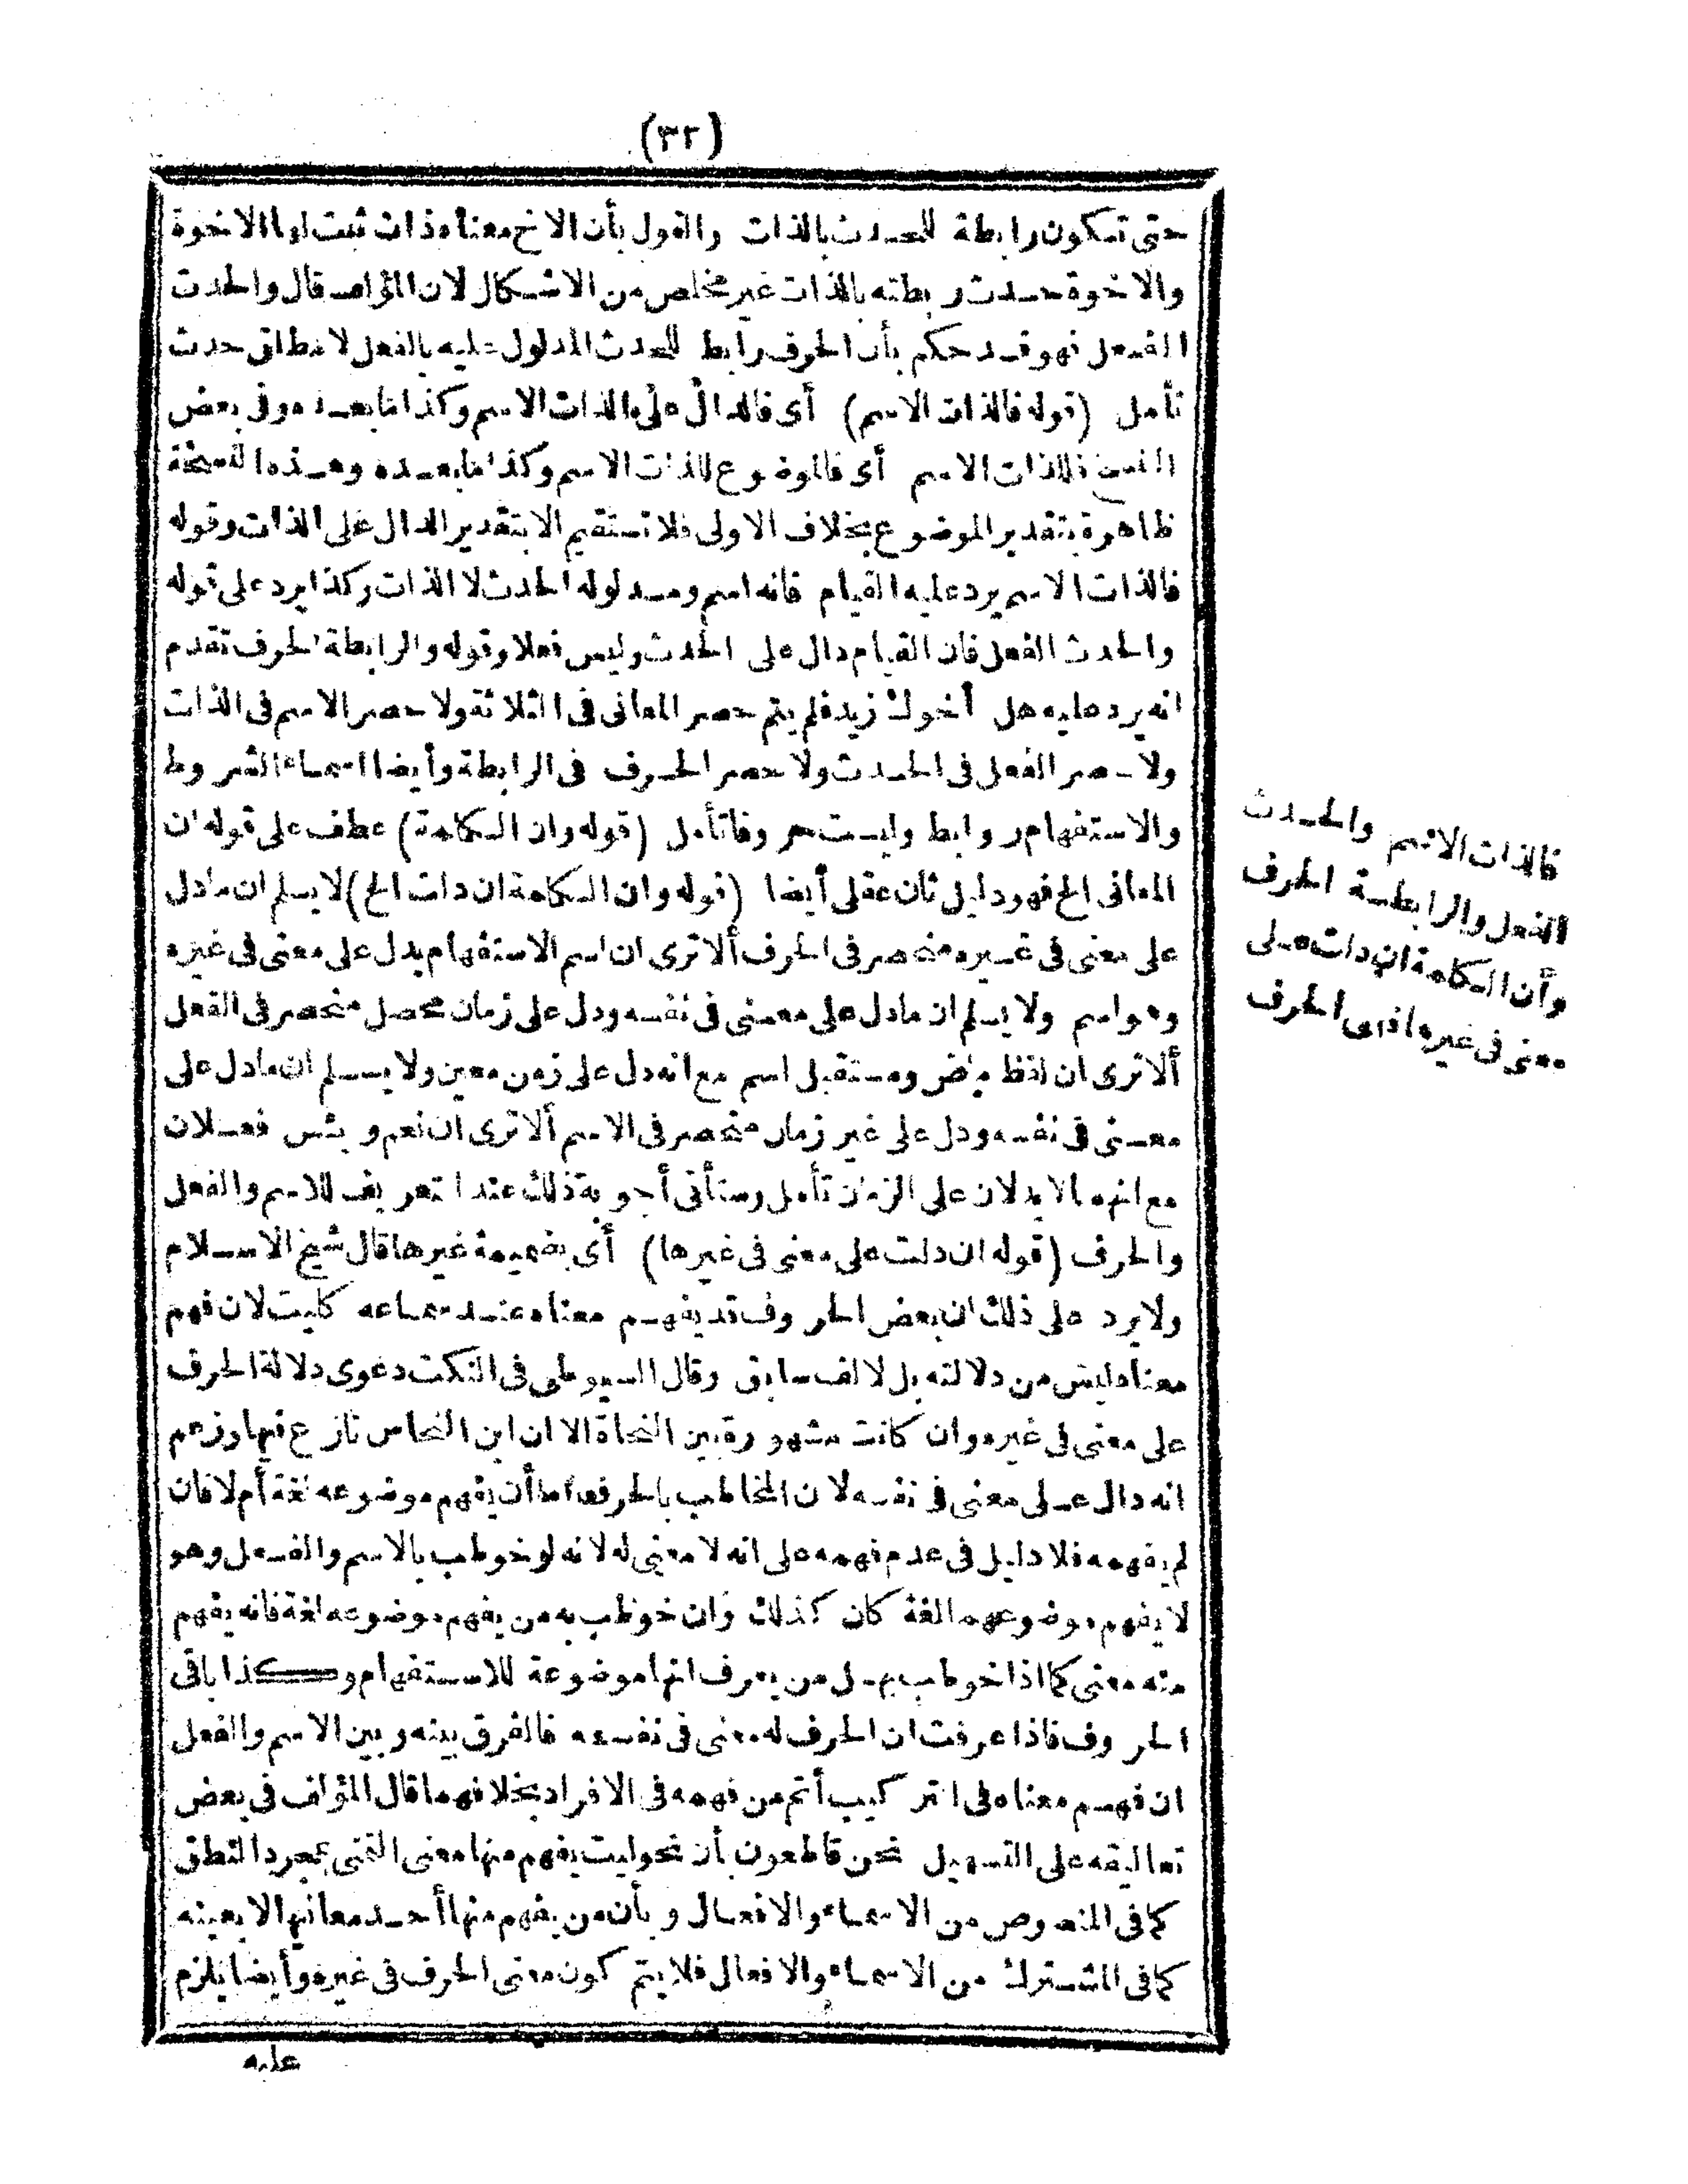 (٣٢)
حتى تكون رابطة للحدث بالذات والقول بأن الاخ معناه ذات ثبت لها الاخوة
والاخوة حدث ربطته بالذات غير مخلص من الاشكال لان المؤلف قال والحدث
الفعل فهو قد حكم بأن الحرف رابط للحدث المدلول عليه بالفعل لا مطلق حدث
تأمل (قوله فالذات الاسم) أى فالدال على الذات الاسم وكذا ما بعده وفى بعض
النسخ فللذات الاسم أى فالموضوع للذات الاسم وكذا ما بعده وهذه النسخة
ظاهرة بتقدير الموضوع بخلاف الاولى فلا تستقيم الا بتقدير الدال على الذات وقوله
فالذات الاسم يرد عليه القيام فانه اسم ومدلوله الحدث لا الذات وكذا يرد على قوله
والحدث الفعل فان القيام دال على الحدث وليس فعلا وقوله والرابطة الحرف تقدم
انه يرد عليه هل أخوك زيد فلم يتم حصر المعانى فى الثلاثة ولا حصر الاسم فى الذات
ولا حصر الفعل فى الحدث ولا حصر الحرف فى الرابطة وأيضا اسماء الشروط
والاستفهام روابط وليست حروفا تأمل (قوله وان الكلمة) عطف على قوله ان
المعانى الخ فهو دليل ثان عقلى أيضا (قوله وان الكلمة ان دلت الخ) لا يسلم ان ما دل
على معنى فى غيره منحصر فى الحرف ألا ترى ان اسم الاستفهام يدل على معنى فى غيره
وهو اسم ولا يسلم ان ما دل على معنى فى نفسه ودل على زمان محصل منحصر فى الفعل
ألا ترى ان لفظ ماض ومستقبل اسم مع انه دل على زمن معين ولا يسلم ان ما دل على
معنى فى نفسه ودل على غير زمان منحصر فى الاسم ألا ترى ان نعم وبئس فعلان
مع انهما لا يدلان على الزمان تأمل وستأتى أجوبة ذلك عند تعريف الاسم والفعل
والحرف (قوله ان دلت على معنى فى غيرها) أى بضميمة غيرها قال شيخ الاسلام
ولا يرد على ذلك ان بعض الحروف قد يفهم معناه عند سماعه كليت لان فهم
معناه ليس من دلالته بل لالف سابق وقال السيوطى فى النكت دعوى دلالة الحرف
على معنى فى غيره وان كانت مشهورة بين النحاة الا ان ابن النحاس نازع فيها وزعم
انه دال على معنى فى نفسه لان المخاطب بالحرف اما أن يفهم موضوعه لغة أم لا فان
لم يفهمه فلا دليل فى عدم فهمه على انه لا معنى له لانه لو خوطب بالاسم والفعل وهو
لا يفهم موضوعهما لغة كان كذلك وان خوطب به من يفهم موضوعه لغة فانه يفهم
منه معنى كما اذا خوطب بهل من يعرف انها موضوعة للاستفهام وكذا باقى
الحروف فاذا عرفت ان الحرف له معنى فى نفسه فالفرق بينه وبين الاسم والفعل
ان فهم معناه فى التركيب أتم من فهمه فى الافراد بخلافهما قال المؤلف فى بعض
تعاليقه على التسهيل نحن قاطعون بأن نحو ليت يفهم منها معنى التمنى بمجرد النطق
كما فى المنصوص من الاسماء والافعال وبأن من يفهم منها أحد معانيها لا بعينه
كما فى المشترك من الاسماء والافعال فلا يتم كون معنى الحرف فى غيره وأيضا يلزم
عليه
فالذات الاسم والحدث
الفعل والرابطة الحرف
وأن الكلمة ان دلت على
معنى فى غيرها فهى الحرف